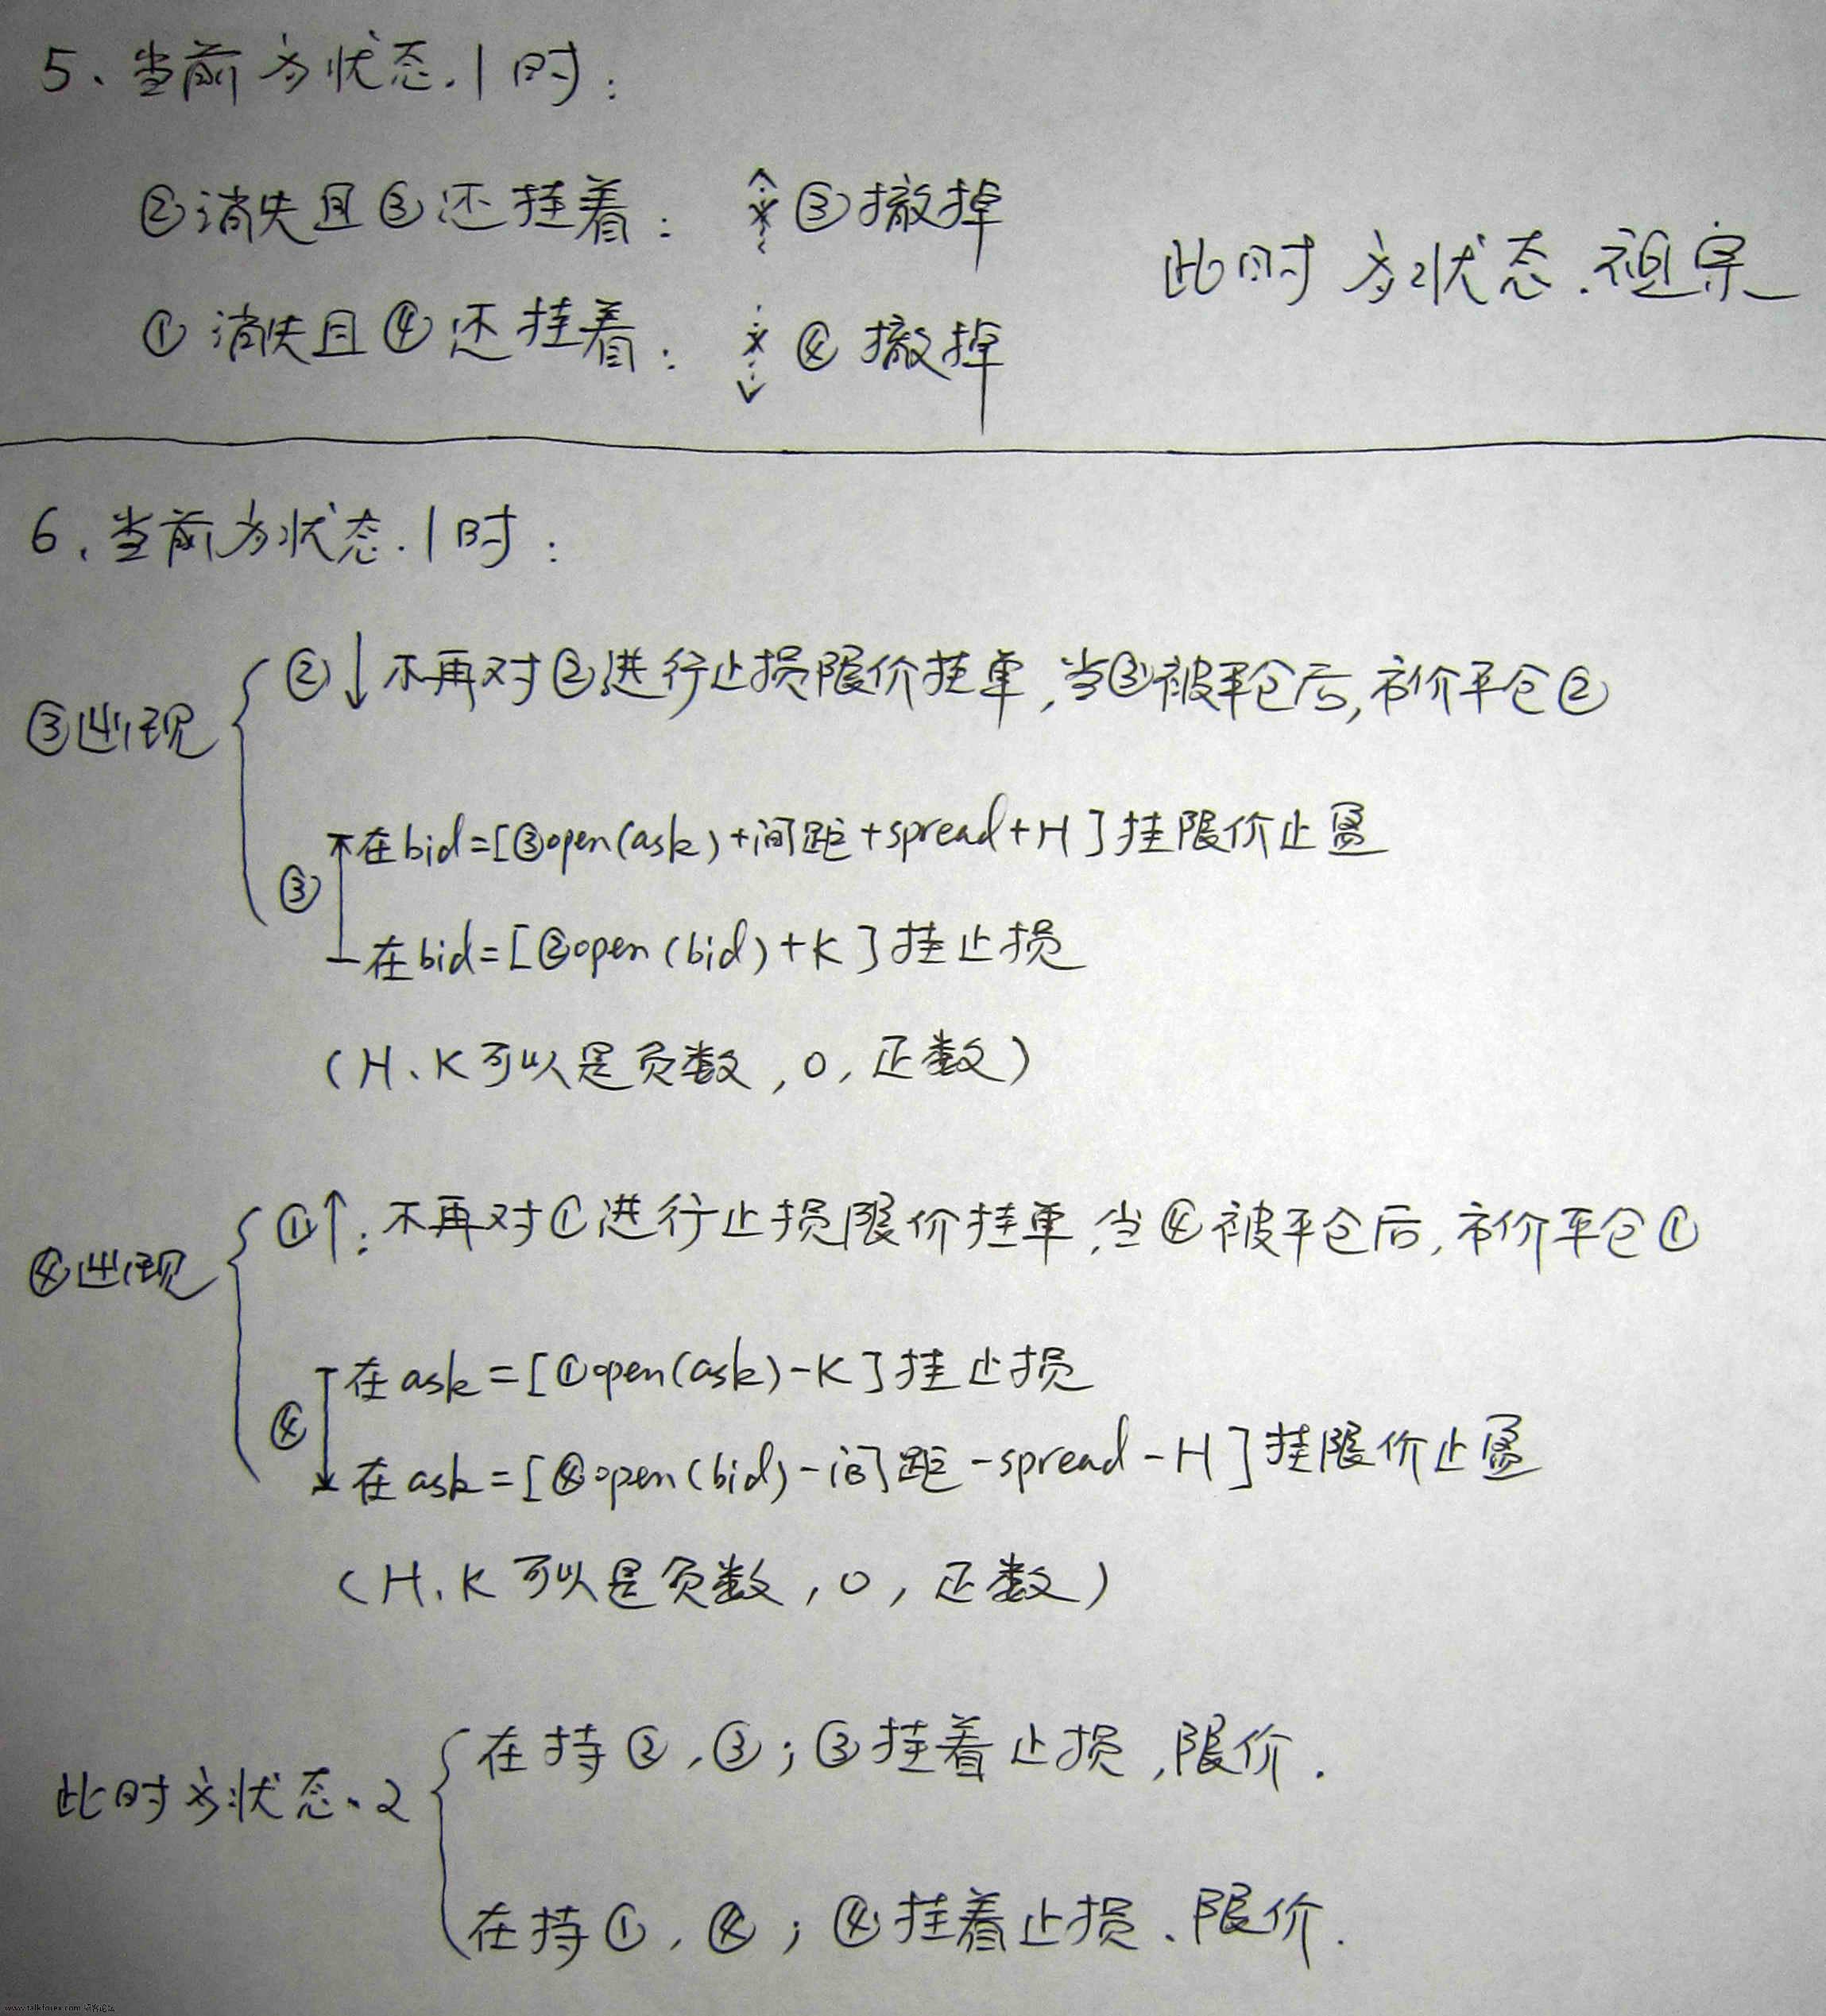 5、当前为状态.1时：
②消失且③还挂着： ③撤掉
此时为状态.祖宗
①消失且④还挂着： ④撤掉
6、当前为状态.1时：
③出现
②↓不再对②进行止损限价挂单,当③被平仓后,市价平仓②
③
在bid=[③open(ask)+间距+spread+H]挂限价止盈
在bid=[②open(bid)+K]挂止损
(H、K可以是负数,0,正数)
④出现
①↑：不再对①进行止损限价挂单,当④被平仓后,市价平仓①
④
在ask=[①open(ask)-K]挂止损
在ask=[④open(bid)-间距-spread-H]挂限价止盈
(H、K可以是负数,0,正数)
此时为状态.2
在持②,③;③挂着止损,限价.
在持①,④;④挂着止损、限价.
www.talkforex.com